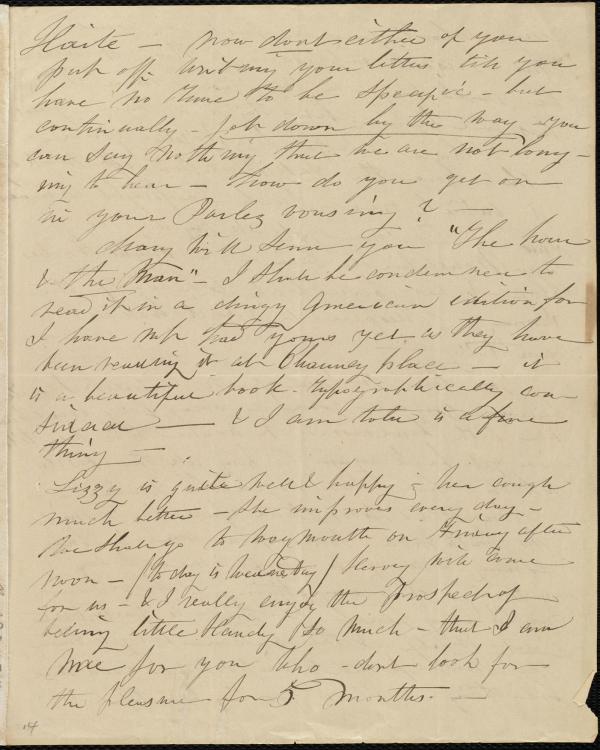 Haite – now dont either of you
put off writing your letters till you
have no time to be specific – but
continually – jot down by the way you
can say nothing that we are not long-
ing to hear – How do you get on
in your Parlez vousing? –
Mary will send you "The hour
& the Man" – I shall be condemned to
read it in a dingy American edition for
I have not had yours yet as they have
been reading it at Chauncy place – it
is a beautiful book – typographically con
sidered – & I am told is a fine
thing –
Lizzy is quite well & happy & her cough
much better – she improves every day –
We shall go to Weymouth on Friday after
noon – (to day is Wednesday) Hervey will come
for us – & I really enjoy the prospect of
seeing little Handy so much – that I am
for you who – dont look for
the pleasure for 5 months. –
14